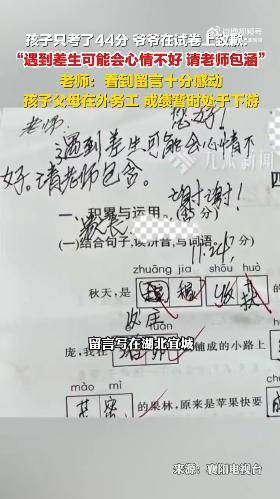 孩子只考了44分 爷爷在试卷上致歉:
“遇到差生可能会心情不好 请老师包涵”
老师：看到留言十分感动
孩子父母在外务工 成绩暂时处于下游
老师
您好!
遇到差生可能会心情不
好。请老师包含。
谢谢!
家长
11.24
一、积累与运用。
(一)结合句子,读拼音,写词语。
zhuāng jia shōu huò
秋天,是
庞,我在
铺成的小路上
留言写在湖北宜城
mào mì
的果林,原来是苹果快要
来源：襄阳电视台